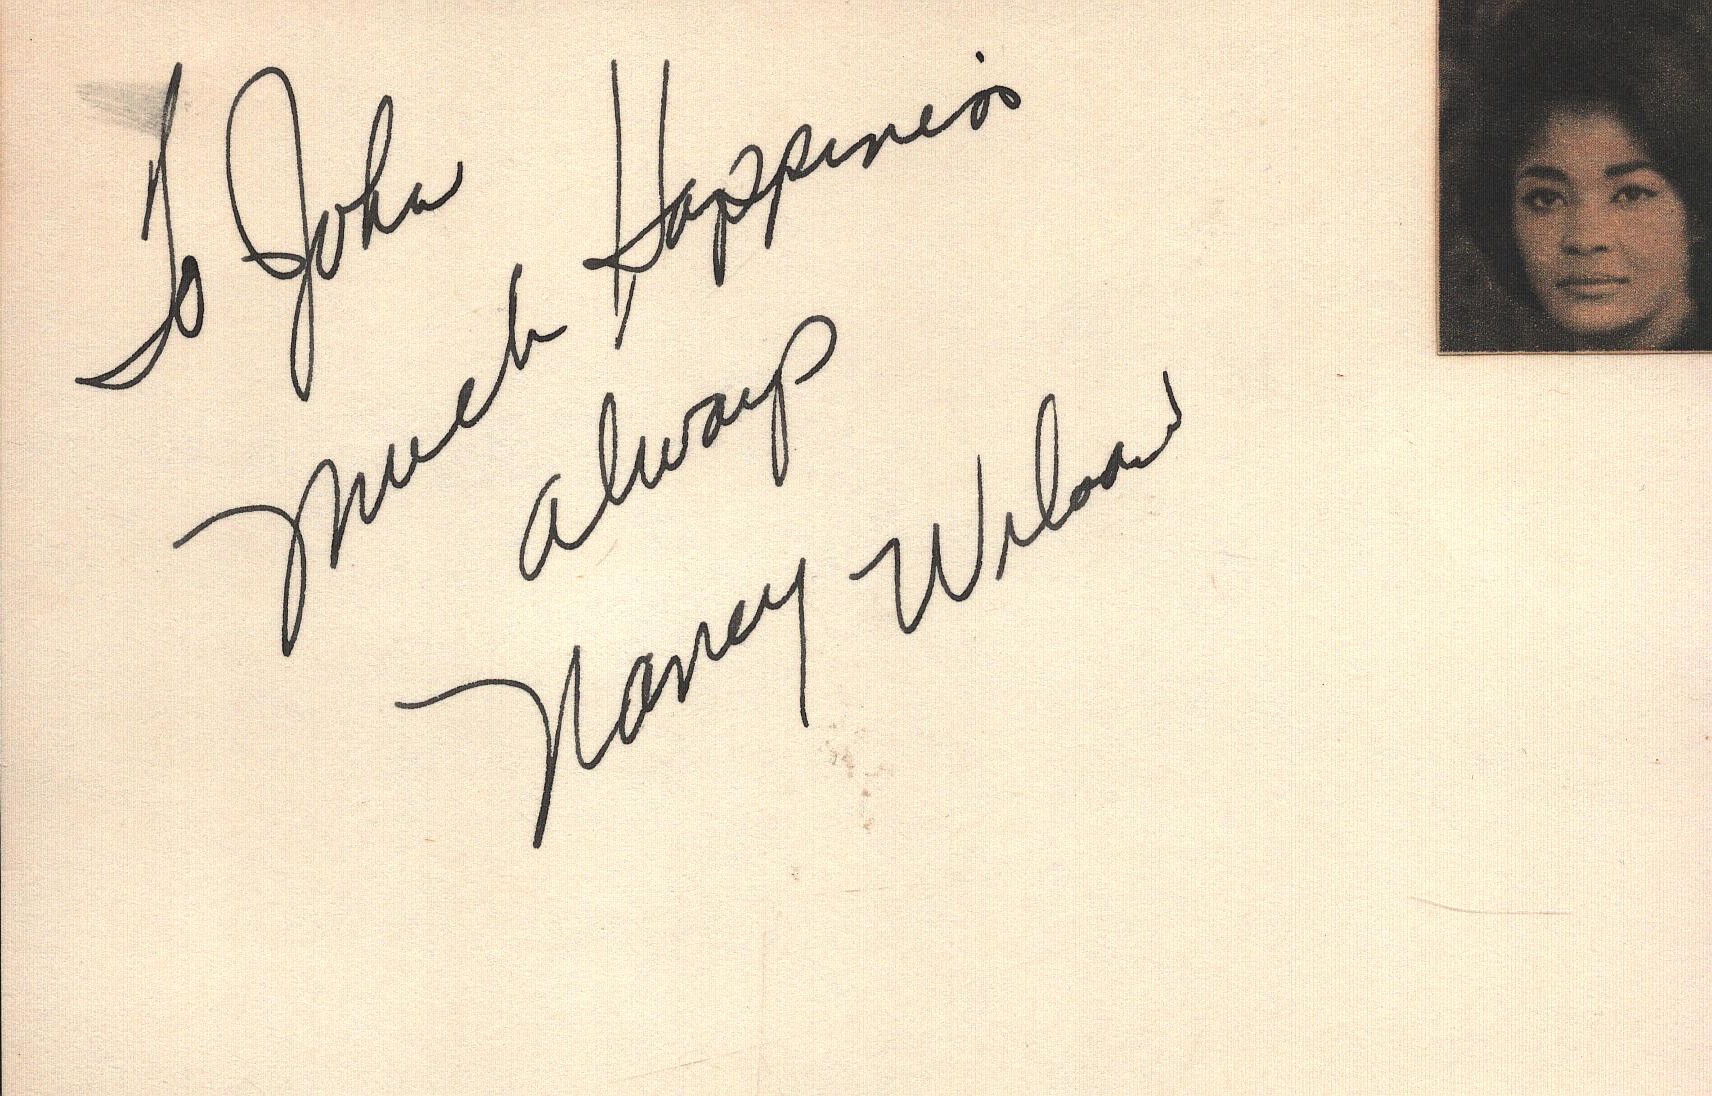 To John
Much Happiness
always
Nancy Wilson